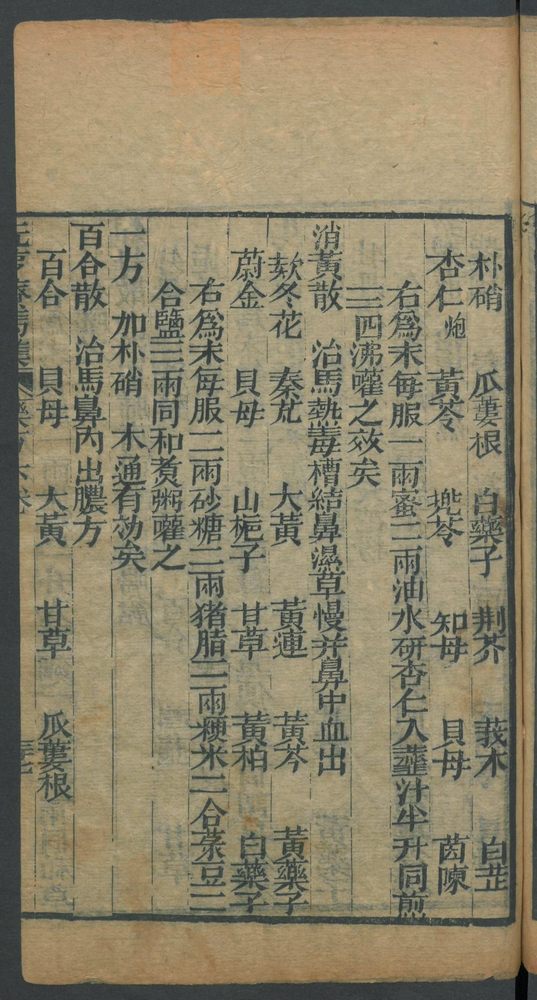 朴硝 瓜蔞根 白藥子 荆芥 莪朮 白芷
杏仁炮 黃芩 兠苓 知母 貝母 茵陳
右爲末每服一兩蜜二兩油水研杏仁入虀汁半升同煎
三四沸嚾之效矣
消黃散 治馬熱毒槽結鼻濕草慢并鼻中血出
欵冬花 秦艽 大黃 黃連 黃芩 黃藥子
蔚金 貝母 山梔子 甘草 黃柏 白藥子
右爲末每服二兩砂糖二兩猪脂二兩稉米二合菉豆二
合鹽三兩同和煑粥嚾之
一方 加朴硝 木通有効矣
百合散 治馬鼻內出膿方
百合 貝母 大黃 甘草 瓜蔞根